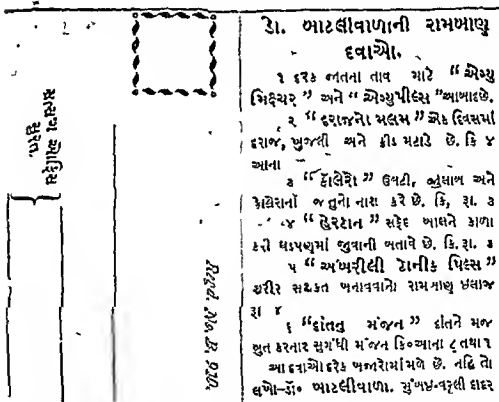 ડા. બાટલીવાળાની રામબાણ
દવાઓ.
૧ દરેક જાતના તાવ માટે “ એગ્યુ
મિક્ષ્ચર ” અને “ એગ્યુપીલ્સ ”આબાદછે.
૨ “ દરાજનો મલમ ” એક દિવસમાં
દરાજ, ખુજલી અને કીડ મટાડે છે. કિ ૪
આના
૩ “ કૉલેરો ” ઉલટી, જુલાબ અને
કોલેરાનાં જંતુનો નાશ કરે છે. કિ, રૂા. ૩
૪ “ હેરટાન ” સફેદ બાલને કાળા
કરી ઘડપણમાં જુવાની બતાવે છે. કિ. રૂા. ૩
૫ “ અંબરીલી ટોનીક પિલ્સ ”
શરીર સશકત બનાવવાનો રામબાણ ઇલાજ
રૂા ૪
૬ “ દાંતનુ મંજન ” દાંતને મજ
બુત કરનાર સુગંધી મંજન કિ૦આના ૮ તથા ૧
આ દવાઓ દરેક બજારોમાં મળે છે. નહિ તો
લખો-ડૉ૦ બાટલીવાળા. મુંબઇ-વરલી દાદર
સત્યાગ્રહ ઓફિસ
સુરત.
Regd. No. B. 920.